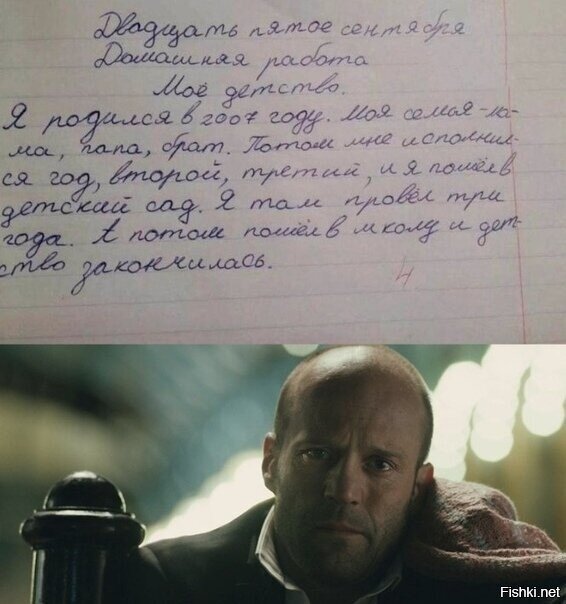 Двадцать пятое сентября
Домашняя работа
Моё детство.
Я родился в 2007 году. Моя семья-ма-
ма, папа, брат. Потом мне исполнил-
ся год, второй, третий, и я пошёл в
детский сад. Я там провёл три
года. А потом пошёл в школу и дет-
ство закончилась.
4
Fishki.net